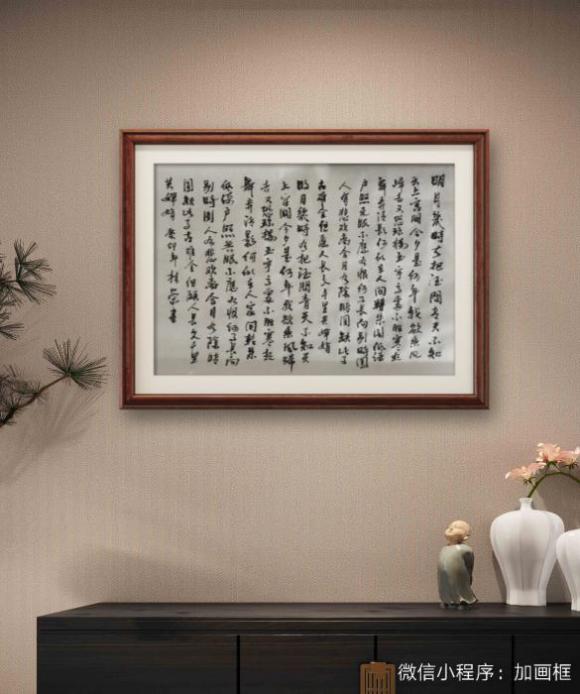 明月幾時有把酒問青天不知
天上宮闕今夕是何年我欲乘風
歸去又恐瓊樓玉宇高處不勝寒起
舞弄清影何似在人間轉朱閣低綺
戶照無眠不應有恨何事長向別時圓
人有悲歡離合月有陰晴圓缺此事
古難全但願人長久千里共嬋娟
明月幾時有把酒問青天不知天
上宮闕今夕是何年我欲乘風歸
去又恐瓊樓玉宇高處不勝寒起
舞弄清影何似在人間轉朱閣
低綺戶照無眠不應有恨何事長向
別時圓人有悲歡離合月有陰晴
圓缺此事古難全但願人長久千里
共嬋娟 癸卯年 書
微信小程序：加画框